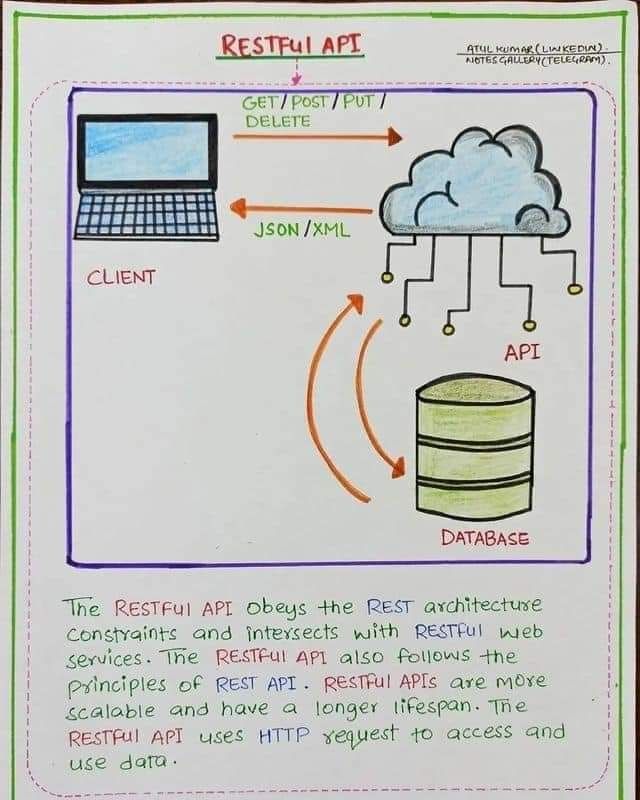 RESTFul API
ATUL KUMAR (LINKEDIN).
NOTES GALLERY (TELEGRAM).
GET / POST / PUT /
DELETE
JSON / XML
CLIENT
API
DATABASE
The RESTFul API obeys the REST architecture
constraints and intersects with RESTFul web
services. The RESTFul API also follows the
principles of REST API. RESTFul APIs are more
scalable and have a longer lifespan. The
RESTFul API uses HTTP request to access and
use data.